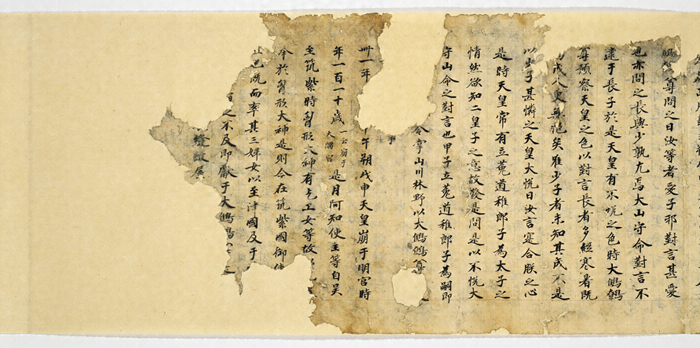 尊問之曰汝等者愛子耶對言甚愛
也亦問之長與少孰尤焉大山守命對言不
逮于長子於是天皇有不悅之色時大鷦鷯
尊預察天皇之色以對言長者多經寒暑既
成人更無悒矣唯少子者未知其成不是
以少子甚憐之天皇大悅曰汝言寔合朕之心
是時天皇常有立菟道稚郎子為太子之
情然欲知二皇子之意故發是問是以不悅大
守山命之對言也甲子立菟道稚郎子為嗣即
令掌山川林野以大鷦鷯尊
卌一年 午朔戊申天皇崩于明宮時
年一百一十歲一云崩于大隅宮是月阿知使主等自吳
至筑紫時胷形大神有乞工女等故
今於胷形大神是則今在筑紫國御使
也既而率其三婦女以至津國及于
之不及即獻于大鷦鷯